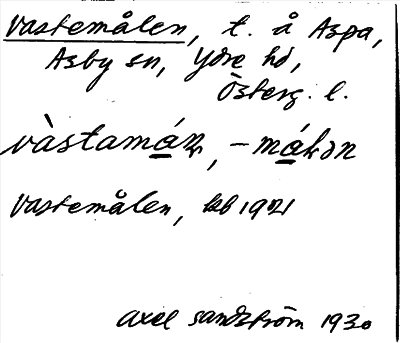 Vastemålen, t. å Aspa,
Asby sn, Ydre hd,
Österg. l.
vàstamán, -málən
Vastemålen, kb 1921
Axel Sandström 1930